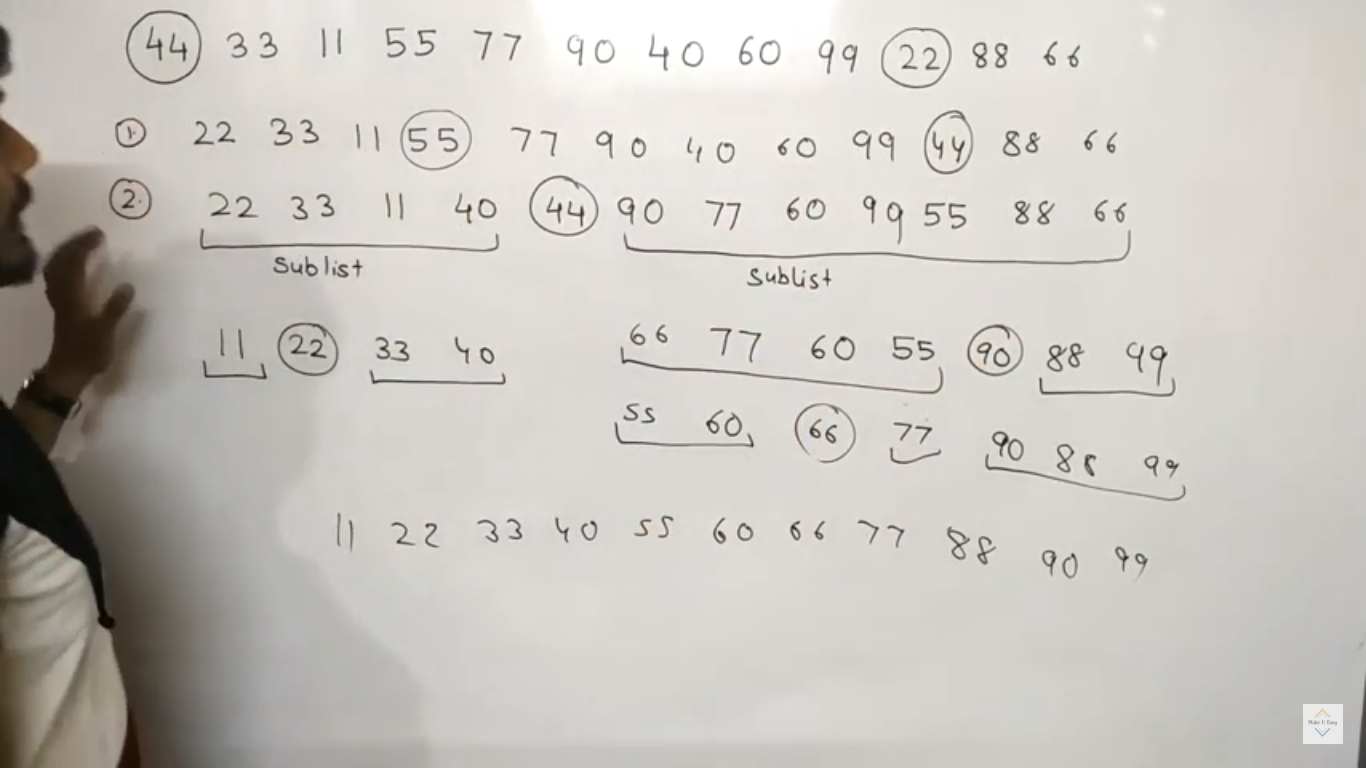 44 33 11 55 77 90 40 60 99 22 88 66
1. 22 33 11 55 77 90 40 60 99 44 88 66
2. 22 33 11 40 44 90 77 60 99 55 88 66
Sublist Sublist
11 22 33 40 66 77 60 55 90 88 99
55 60 66 77 90 88 99
11 22 33 40 55 60 66 77 88 90 99
Make It Easy